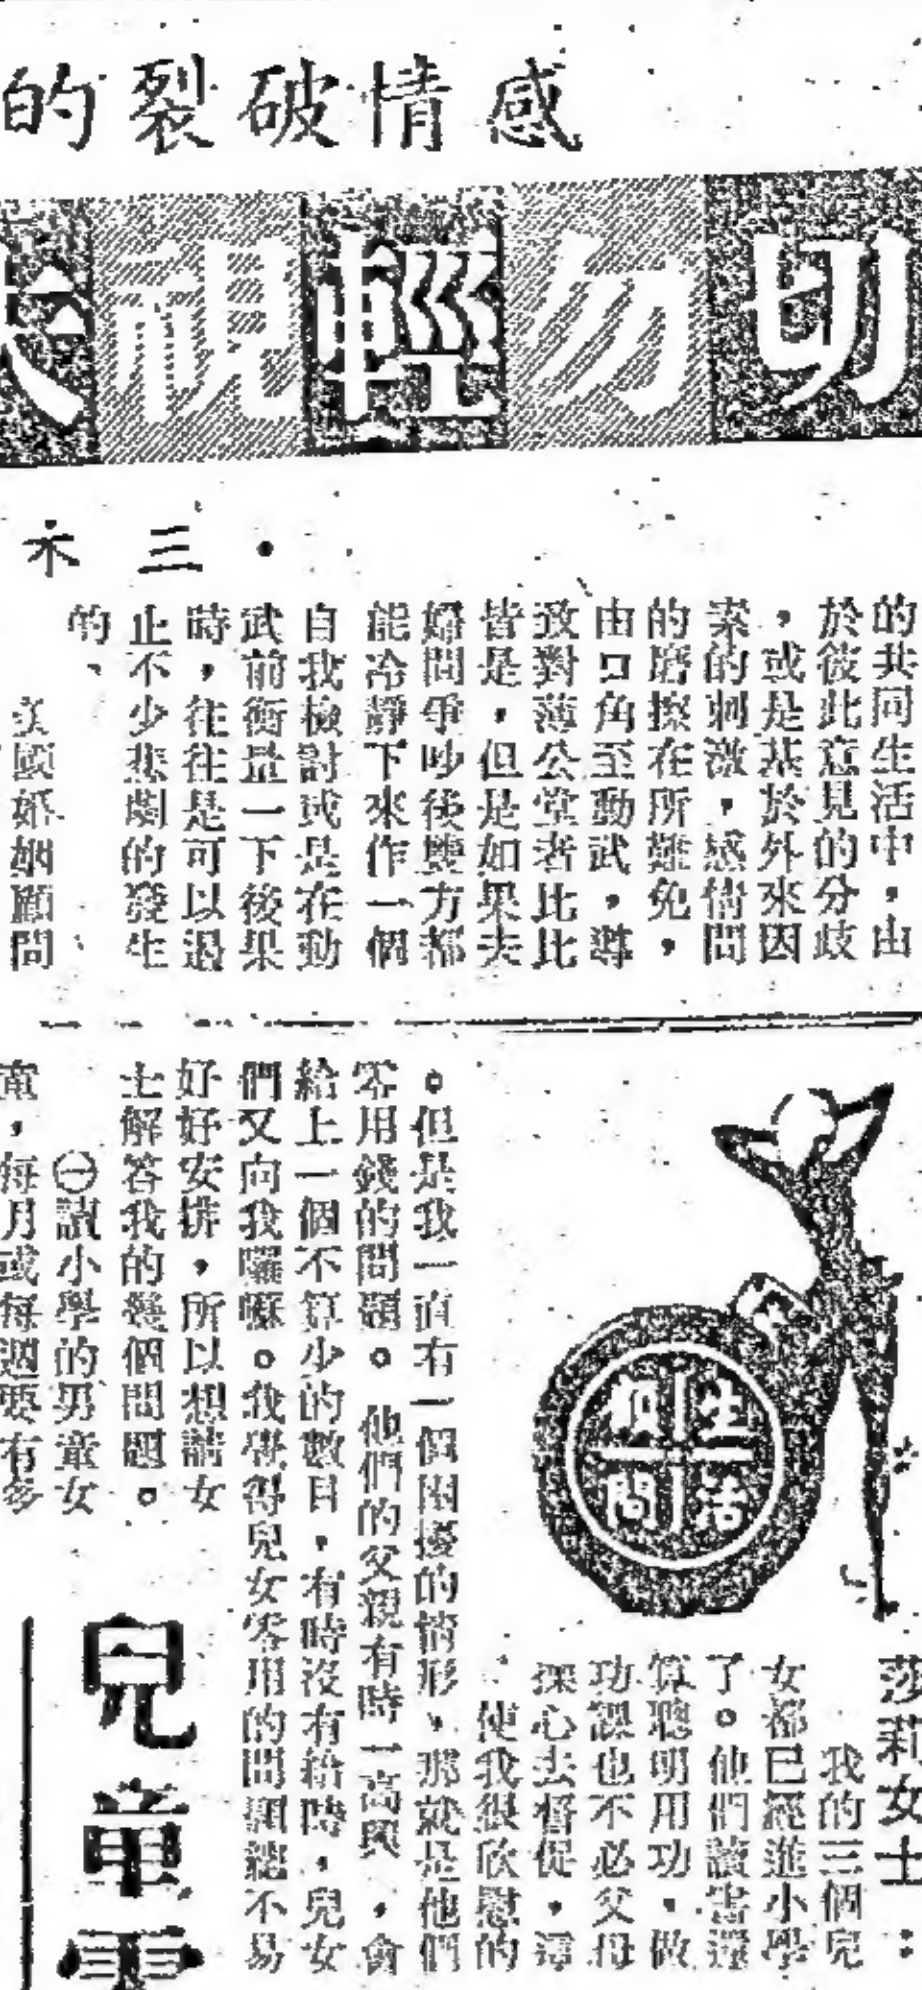 感情破裂的
切勿輕視夫
・三木
的共同生活中，由
於彼此意見的分歧
，或是基於外來因
素的刺激，感情間
的磨擦在所難免，
由口角至動武，導
致對薄公堂者比比
皆是，但是如果夫
婦間爭吵後雙方都
能冷靜下來作一個
自我檢討或是在動
武前衡量一下後果
時，往往是可以遏
止不少悲劇的發生
的、
美國婚姻顧問
生活顧問
莎莉女士：
我的三個兒
女都已經進小學
了。他們讀書還
算聰明用功，做
功課也不必父母
操心去督促，這
使我很欣慰的
。但是我一直有一個困擾的情形，那就是他們
零用錢的問題。他們的父親有時一高興，會
給上一個不算少的數目，有時沒有給時，兒女
們又向我囉嗦。我覺得兒女零用的問題總不易
好好安排，所以想請女
士解答我的幾個問題。
㊀讀小學的男童女
童，每月或每週要有多
兒童零